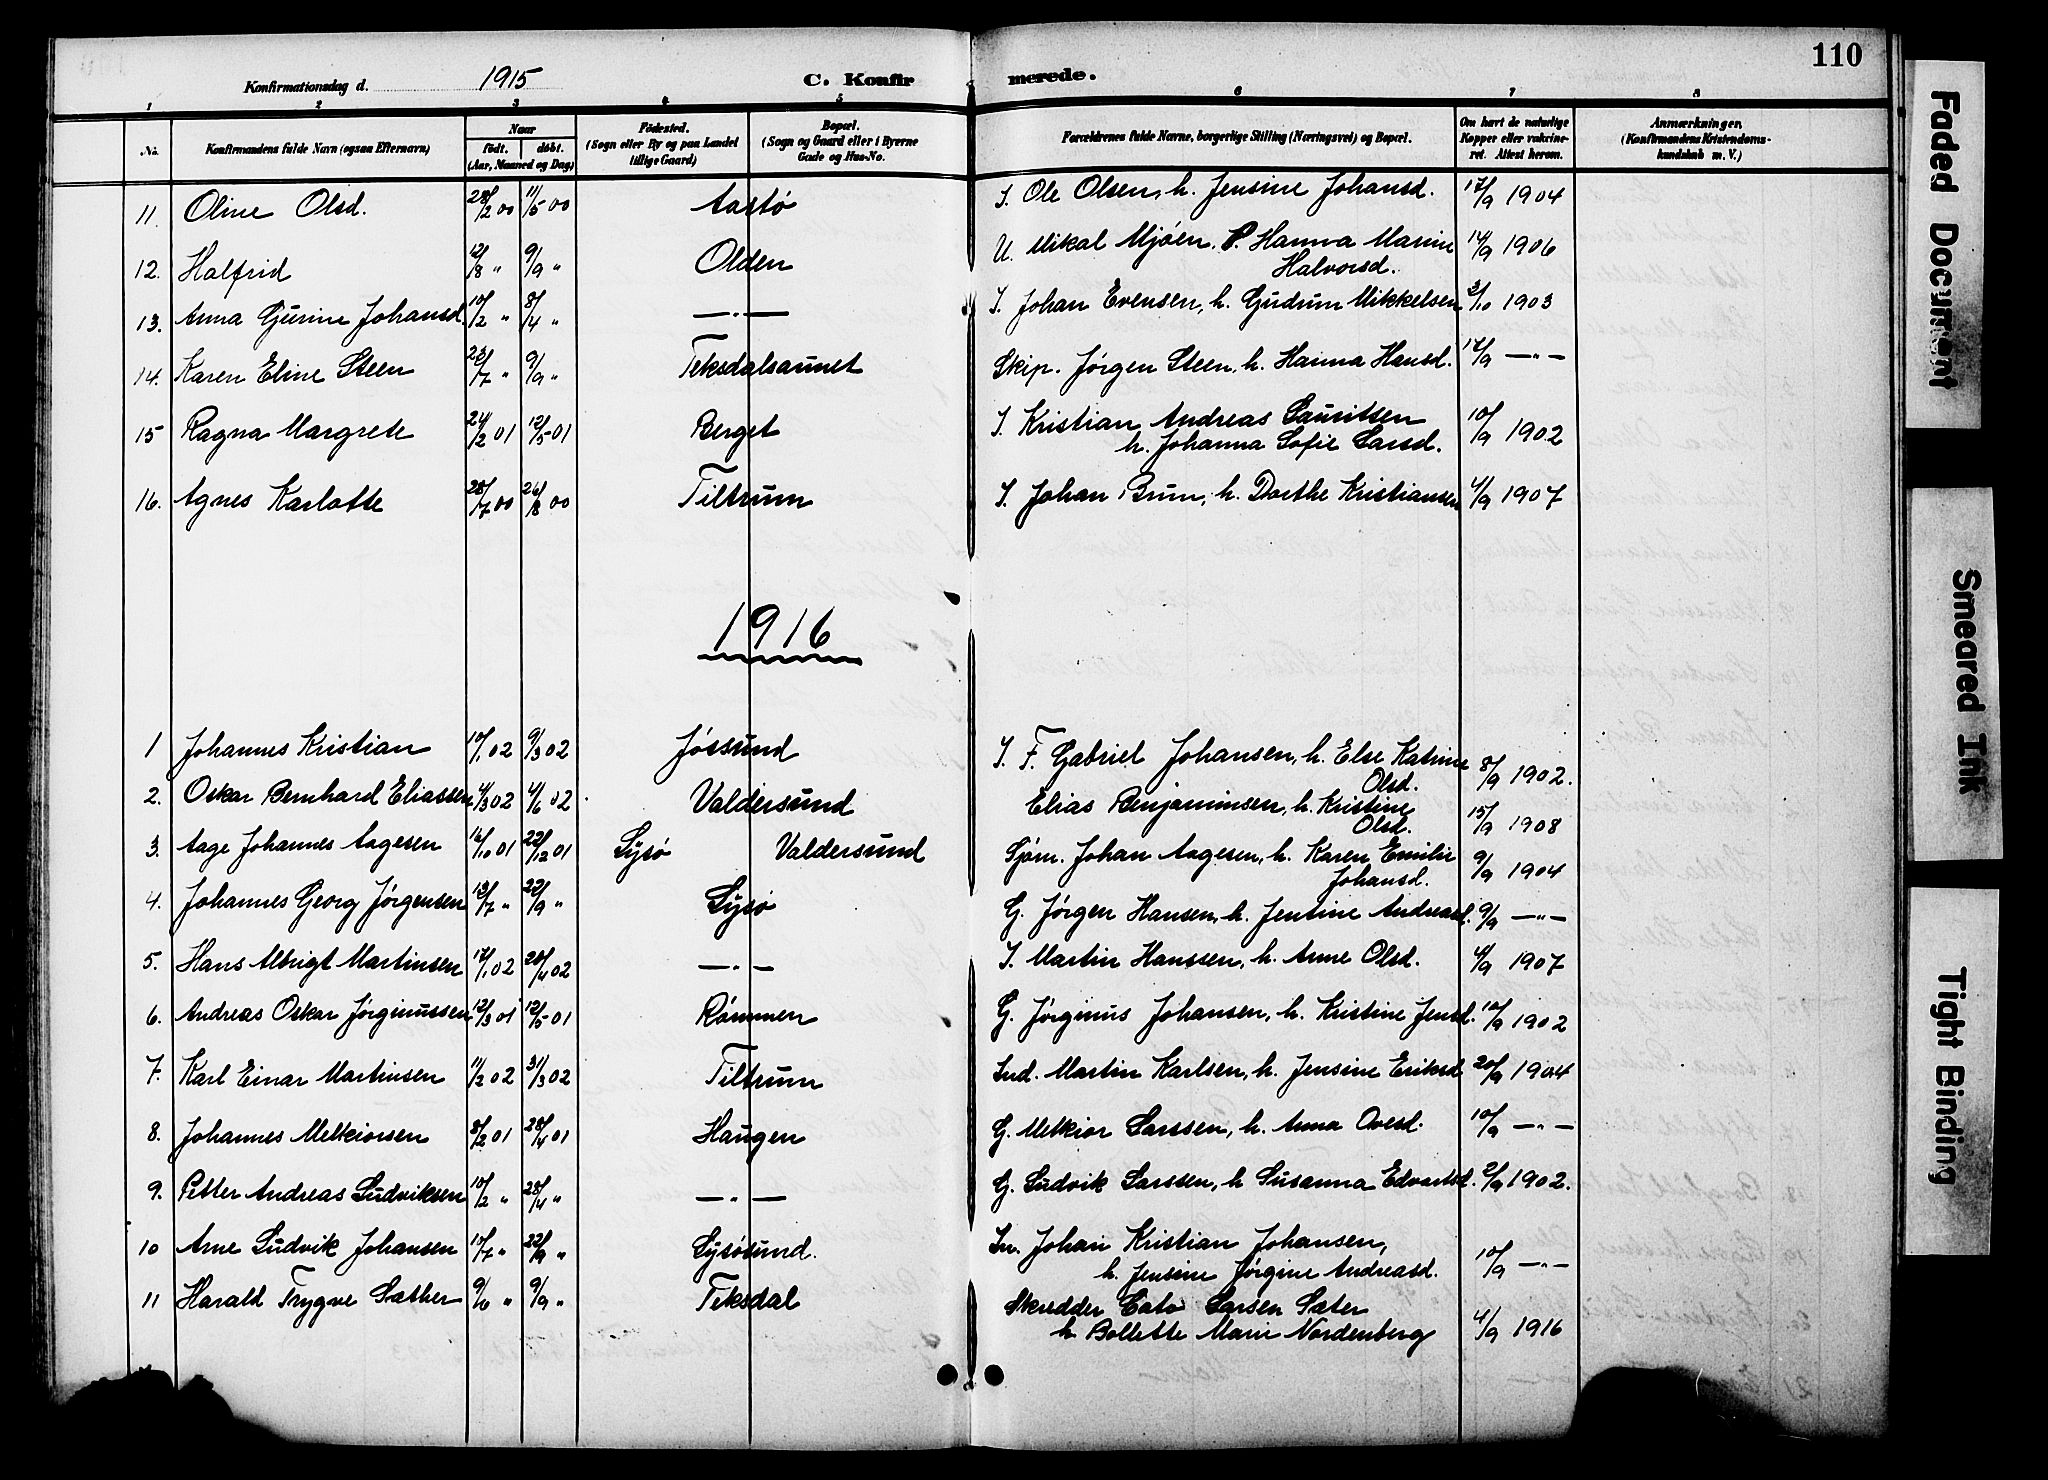 110
Konfirmationsdag d. 1915 C. Konfirmerede.
1 2 3 4 5 6 7 8
No. Konfirmandens fulde Navn (ogsaa Efternavn) Naar født. døbt. (Aar, Maaned og Dag) Fødested. (Sogn eller By og paa Landet tillige Gaard) Bopæl. (Sogn og Gaard eller i Byerne Gade og Hus-No. Forældrenes fulde Navne, borgerlige Stilling (Næringsvei) og Bopæl. Om havt de naturlige Kopper eller vakcineret. Attest herom. Anmærkninger. (Konfirmandens Kristendomskundskab m. V.)
11. Oline Olsd. 28/2 00 11/5 00 Aastø I. Ole Olsen, h. Jensine Johansd. 17/9 1904
12. Halfrid 12/8 " 9/9 " Olden U. Mikal Mjøen. P. Hanna Marine Halvorsd. 14/9 1906
13. Anna Gurine Johansd. 10/2 " 8/4 " —"— I. Johan Evensen, h. Gudrun Mikkelsen 3/10 1903
14. Karen Eline Steen 23/7 " 9/9 " Teksdalsaunet Skip. Jørgen Steen, h. Hanna Hansd. 17/9 —"—
15 Ragna Margrete 24/2 01 12/5 01 Berget I. Kristian Andreas Lauritsen
h. Johanna Sofie Larsd. 10/9 1902
16. Agnes Karlotte 28/7 00 26/8 00 Tiltrum I. Johan Brun, h. Dorthe Kristiansen 4/9 1907
1916
1 Johannes Kristian 10/1 02 9/3 02 Jøssund I. F. Gabriel Johansen, h. Else Katrine Olsd. 8/9 1902.
2. Oskar Bernhard Eliassen 4/3 02 4/6 02 Valdersund Elias Benjaminsen, h. Kristine Olsd. 15/9 1908
3. Aage Johannes Aagesen 16/10 01 22/12 01 Lysø Valdersund Sjøm. Johan Aagesen, h. Karen Emilie Johansd. 9/9 1904
4. Johannes Georg Jørgensen 13/7 " 22/9 " Lysø G. Jørgen Hansen, h. Jentine Andreasd. 9/9 —"—
5. Hans Albrigt Martinsen 17/1 02 20/4 02 —"— I. Martin Hanssen, h. Anne Olsd. 4/9 1907
6. Andreas Oskar Jørginussen 12/3 01 12/5 01 Rømmen G. Jørginus Johansen, h. Kristine Jensd. 10/9 1902
7. Karl Einar Martinsen 11/2 02 31/3 02 Tiltrum Ind. Martin Karlsen, h. Jensine Eriksd 20/9 1904
8. Johannes Melkiorsen 3/2 01 28/4 01 Haugen G. Melkior Larssen, h. Anna Ovesd. 10/9 —"—
9. Petter Andreas Ludviksen 10/2 " 28/4 " —"— G. Ludvik Larssen, h Susanna Edvartsd. 2/9 1902.
10 Arne Ludvik Johansen 10/7 " 22/9 " Lysøsund. In. Johan Kristian Johansen,
h. Jensine Jørgine Andreasd. 10/9 —"—
11 Harald Trygve Sæther 9/6 " 9/9 " Teksdal Skredder Cato Larsen Sæter
h. Bollette Marie Nordenberg 4/9 1916
Faded Document
Smeared Ink
Tight Binding